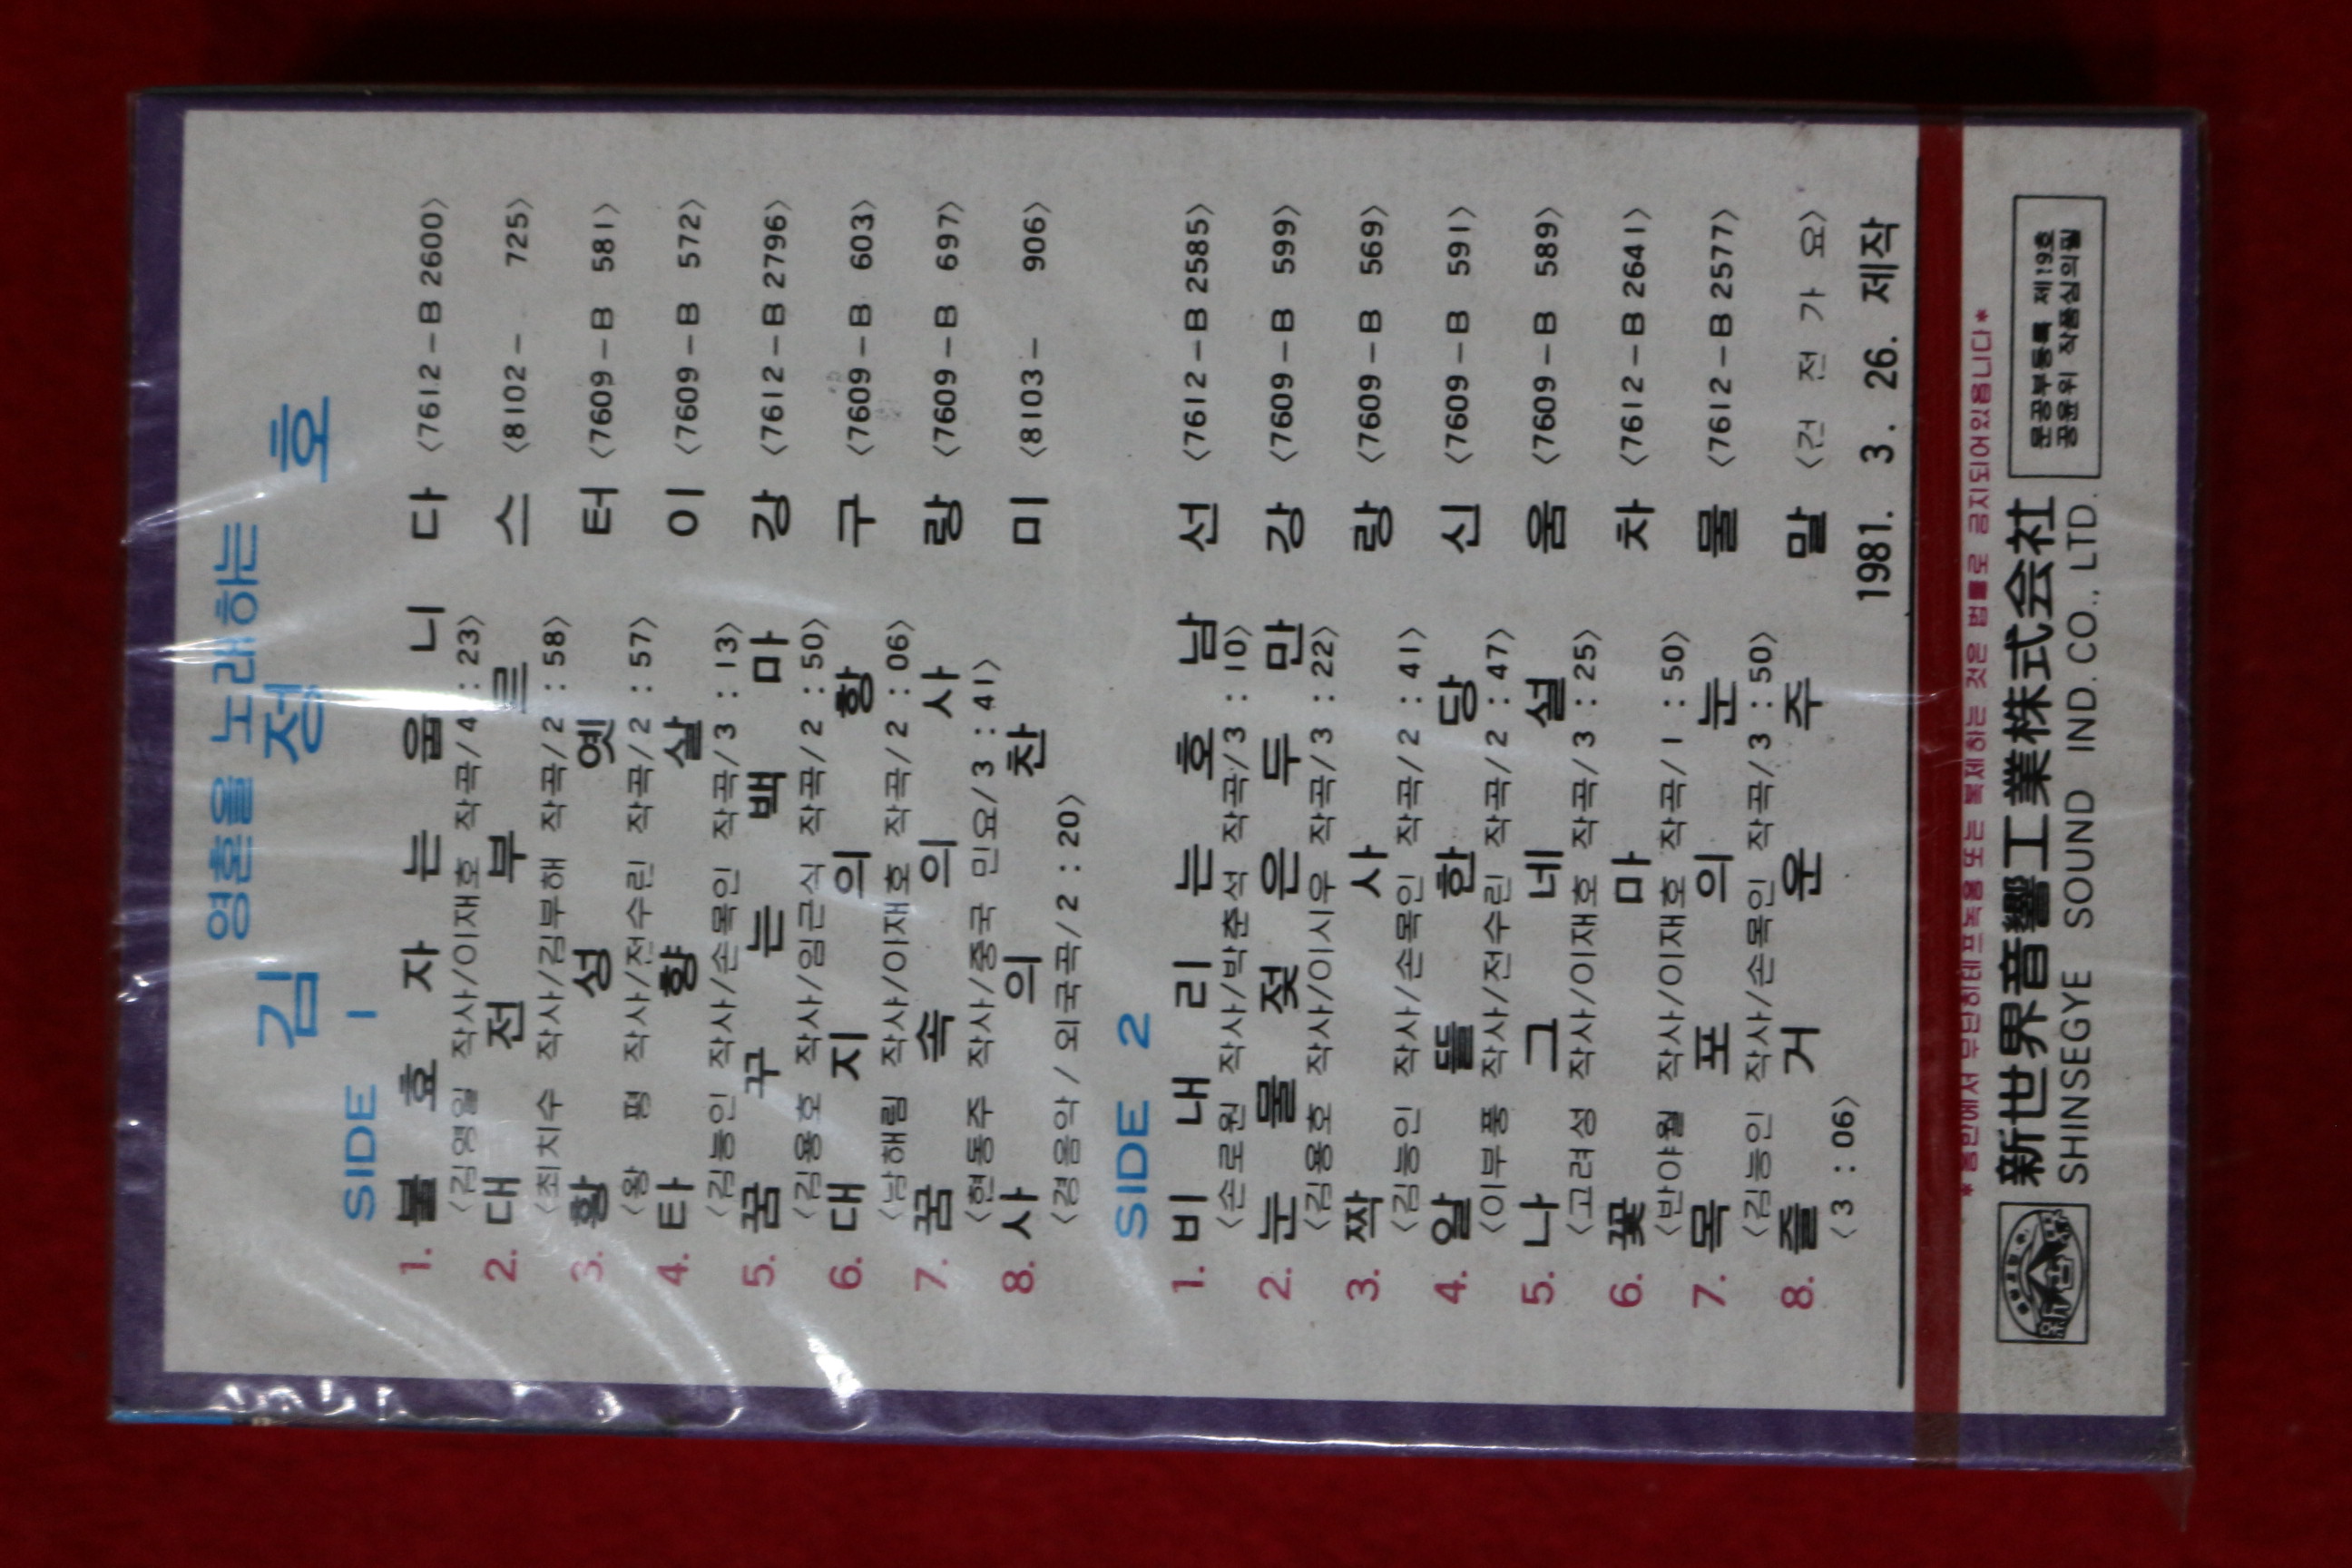 영혼을 노래하는
김 정 호
SIDE 1
1. 불 효 자 는 웁 니 다 〈7612-B 2600〉
〈김영일 작사/이재호 작곡/4 : 23〉
2. 대 전 부 르 스 〈8102- 725〉
〈최치수 작사/김부해 작곡/2 : 58〉
3. 황 성 옛 터 〈7609-B 581〉
〈왕 평 작사/전수린 작곡/2 : 57〉
4. 타 향 살 이 〈7609-B 572〉
〈김능인 작사/손목인 작곡/3 : 13〉
5. 꿈 꾸 는 백 마 강 〈7612-B 2796〉
〈김용호 작사/임근식 작곡/2 : 50〉
6. 대 지 의 항 구 〈7609-B 603〉
〈남해림 작사/이재호 작곡/2 : 06〉
7. 꿈 속 의 사 랑 〈7609-B 697〉
〈현동주 작사/중국 민요/3 : 41〉
8. 사 의 찬 미 〈8103- 906〉
〈경음악 / 외국곡/2 : 20〉
SIDE 2
1. 비 내 리 는 호 남 선 〈7612-B 2585〉
〈손로원 작사/박춘석 작곡/3 : 10〉
2. 눈 물 젖 은 두 만 강 〈7609-B 599〉
〈김용호 작사/이시우 작곡/3 : 22〉
3. 짝 사 랑 〈7609-B 569〉
〈김능인 작사/손목인 작곡/2 : 41〉
4. 알 뜰 한 당 신 〈7609-B 591〉
〈이부풍 작사/전수린 작곡/2 : 47〉
5. 나 그 네 설 움 〈7609-B 589〉
〈고려성 작사/이재호 작곡/3 : 25〉
6. 꽃 마 차 〈7612-B 2641〉
〈반야월 작사/이재호 작곡/1 : 50〉
7. 목 포 의 눈 물 〈7612-B 2577〉
〈김능인 작사/손목인 작곡/3 : 50〉
8. 즐 거 운 주 말 〈건 전 가 요〉
〈3 : 06〉
1981. 3. 26. 제작
*음반에서 무단히테프녹음 또는 복제하는 것은 법률로 금지되어있읍니다*
新世界音響工業株式会社
SHINSEGYE SOUND IND. CO., LTD.
문공부등록 제19호
공윤위 작품심의필